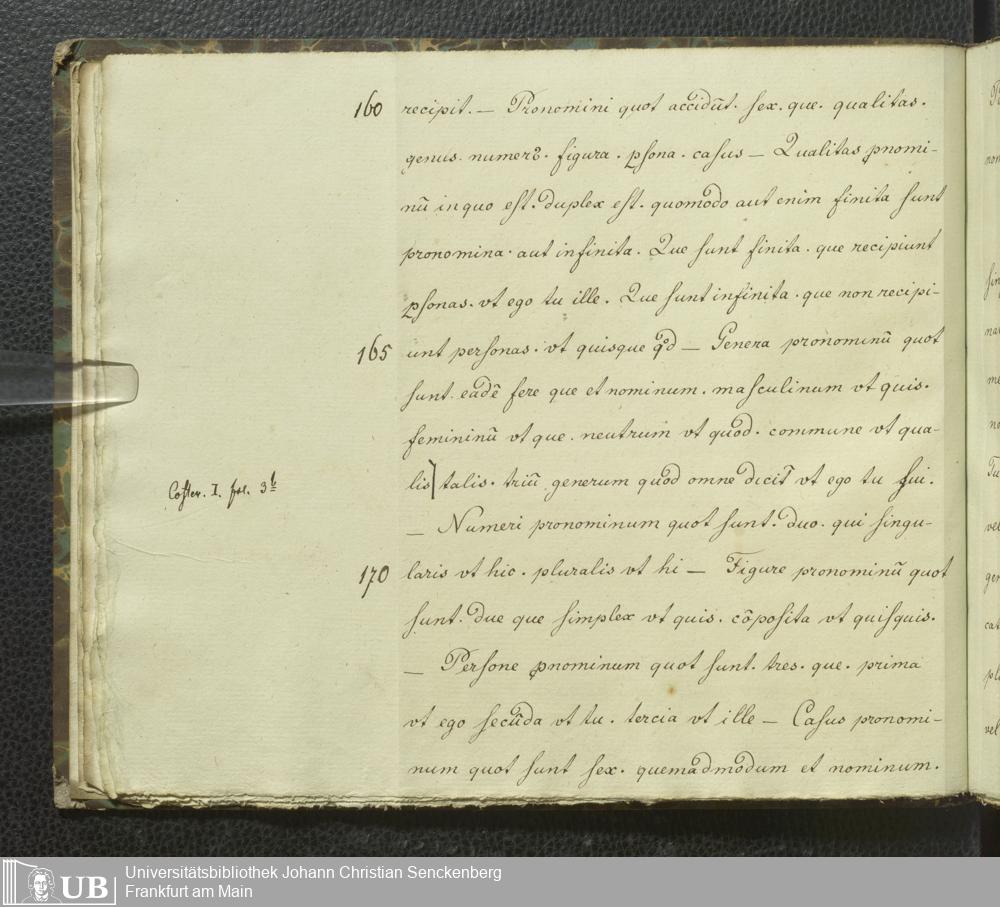 160 recipit. — Pronomini quot accidūt. sex. que. qualitas.
genus. numerꝰ. figura. ꝑsona. casus — Qualitas ꝓnomi-
nū in quo est. duplex est. quomodo aut enim finita sunt
pronomina. aut infinita. Que sunt finita. que recipiunt
ꝑsonas. vt ego tu ille. Que sunt infinita. que non recipi-
165 unt personas. vt quisque qͦd — Genera pronominū quot
sunt. eadē fere que et nominum. masculinum vt quis.
femininū vt que. neutrum vt quod. commune vt qua-
lis) talis. triū generum quod omne dicit᷑ vt ego tu sui.
Coster. I. fol. 3b
— Numeri pronominum quot sunt. duo. qui singu-
170 laris vt hic. pluralis vt hi — Figure pronominū quot
sunt. due que simplex vt quis. cōposita vt quisquis.
— Persone ꝓnominum quot sunt. tres. que. prima
vt ego secūda vt tu. tercia vt ille — Casus pronomi-
num quot sunt sex. quemadmodum et nominum.
nom
sin
me
Tu
vel
gen
cat
plu
vel
UB Universitätsbibliothek Johann Christian Senckenberg
Frankfurt am Main